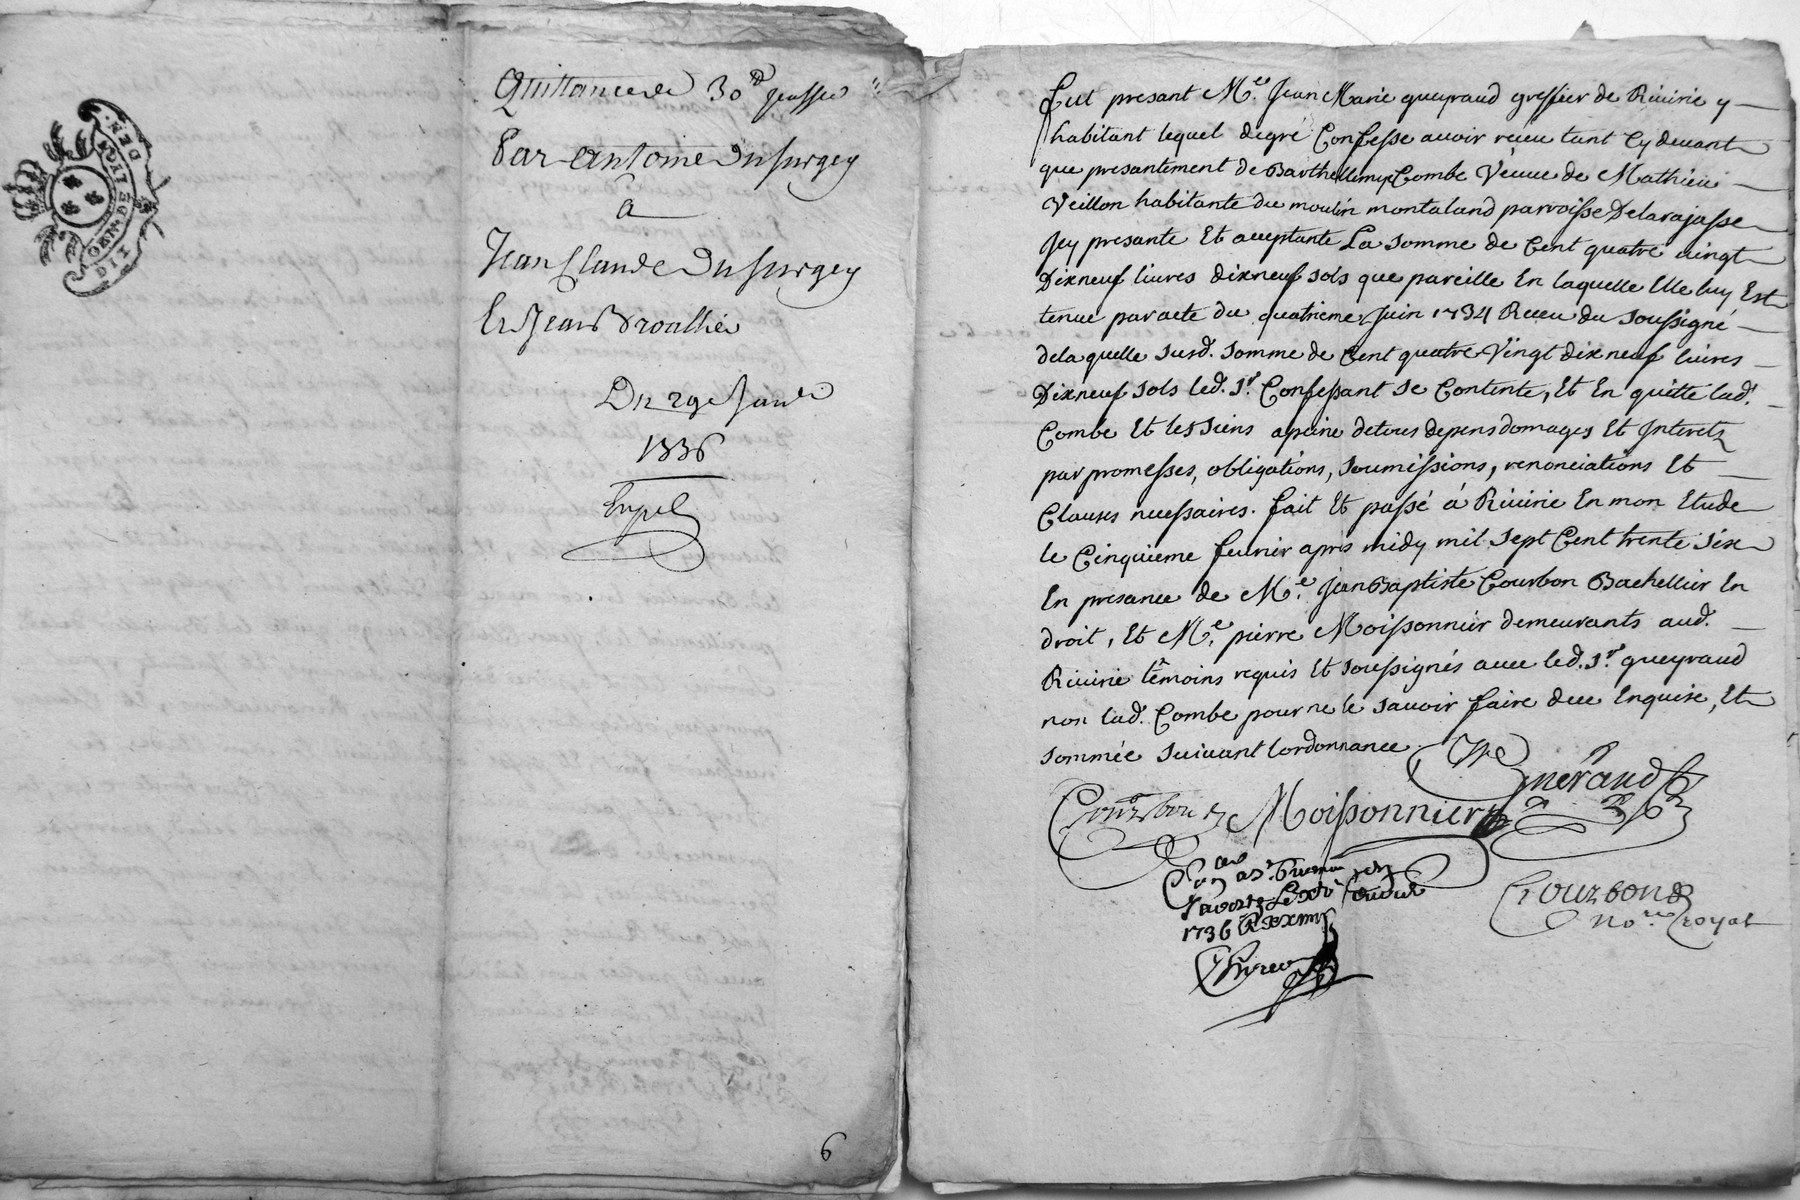 GEN. DE LYON
DIT
DEN.
Quittance de 30 ᵗᵗ passée
Par Antoine Dusurgey
a
Jean Claude Dusurgey
Et Jean Broallier
Du 29e Janv.
1736
Expel
6
fut presant Mᵉ. Jean Marie queyraud greffier de Riuirie y
habitant lequel degré Confesse auoir réceu tant Cy deuant
que presantement de Barthellemye Combe Veuue de Mathieu
Veillon habitante du moulin montaland parroisse Delarajasse
Icy presante Et acceptante La somme de Cent quatre uingt
Dixneuf liures dixneuf sols que pareille En laquelle Elle luy Est
tenue par acte du quatrieme Juin 1734 Receu du soussigné
delaquelle susd. somme de Cent quatre Vingt dixneuf liures
Dixneuf sols led. Sʳ. Confessant se Contente, Et En quitte lad.
Combe Et les siens apeine detous depens domages Et Interets
par promesses, obligations, soumissions, renonciations Et
Clauses necessaires. fait Et passé á Riuirie En mon Etude
le Cinquieme feurier apres midy mil sept Cent trente six
En presance de Mᵉ. Jean Baptiste Courbon Bachellier En
droit, Et Mᵉ. pierre Moissonnier demeurants aud.
Riuirie têmoins requis Et soussignés auec led. Sʳ. queyraud
non lad. Combe pour ne le sauoir faire deue Enquise, Et
sommée suiuant lordonnance.
Courbon Moissonnier
Courbon
Noʳᵉ Royal
1736